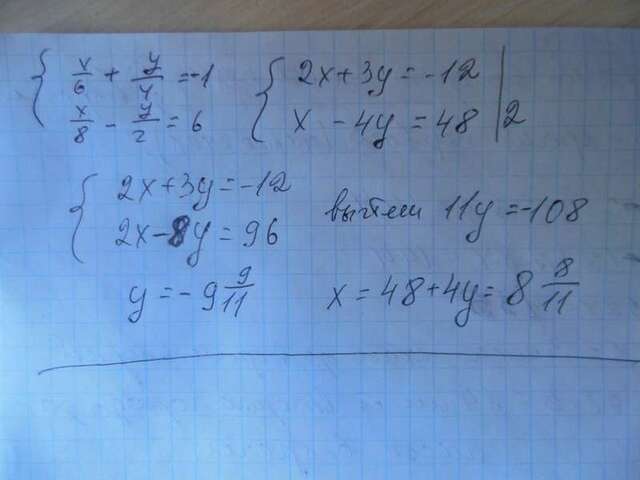 { x/6 + y/4 = -1 { 2x + 3y = -12 |
x/8 - y/2 = 6 x - 4y = 48 | 2
{ 2x + 3y = -12
2x - 8y = 96 вычтем 11y = -108
y = - 9 9/11 x = 48 + 4y = 8 8/11